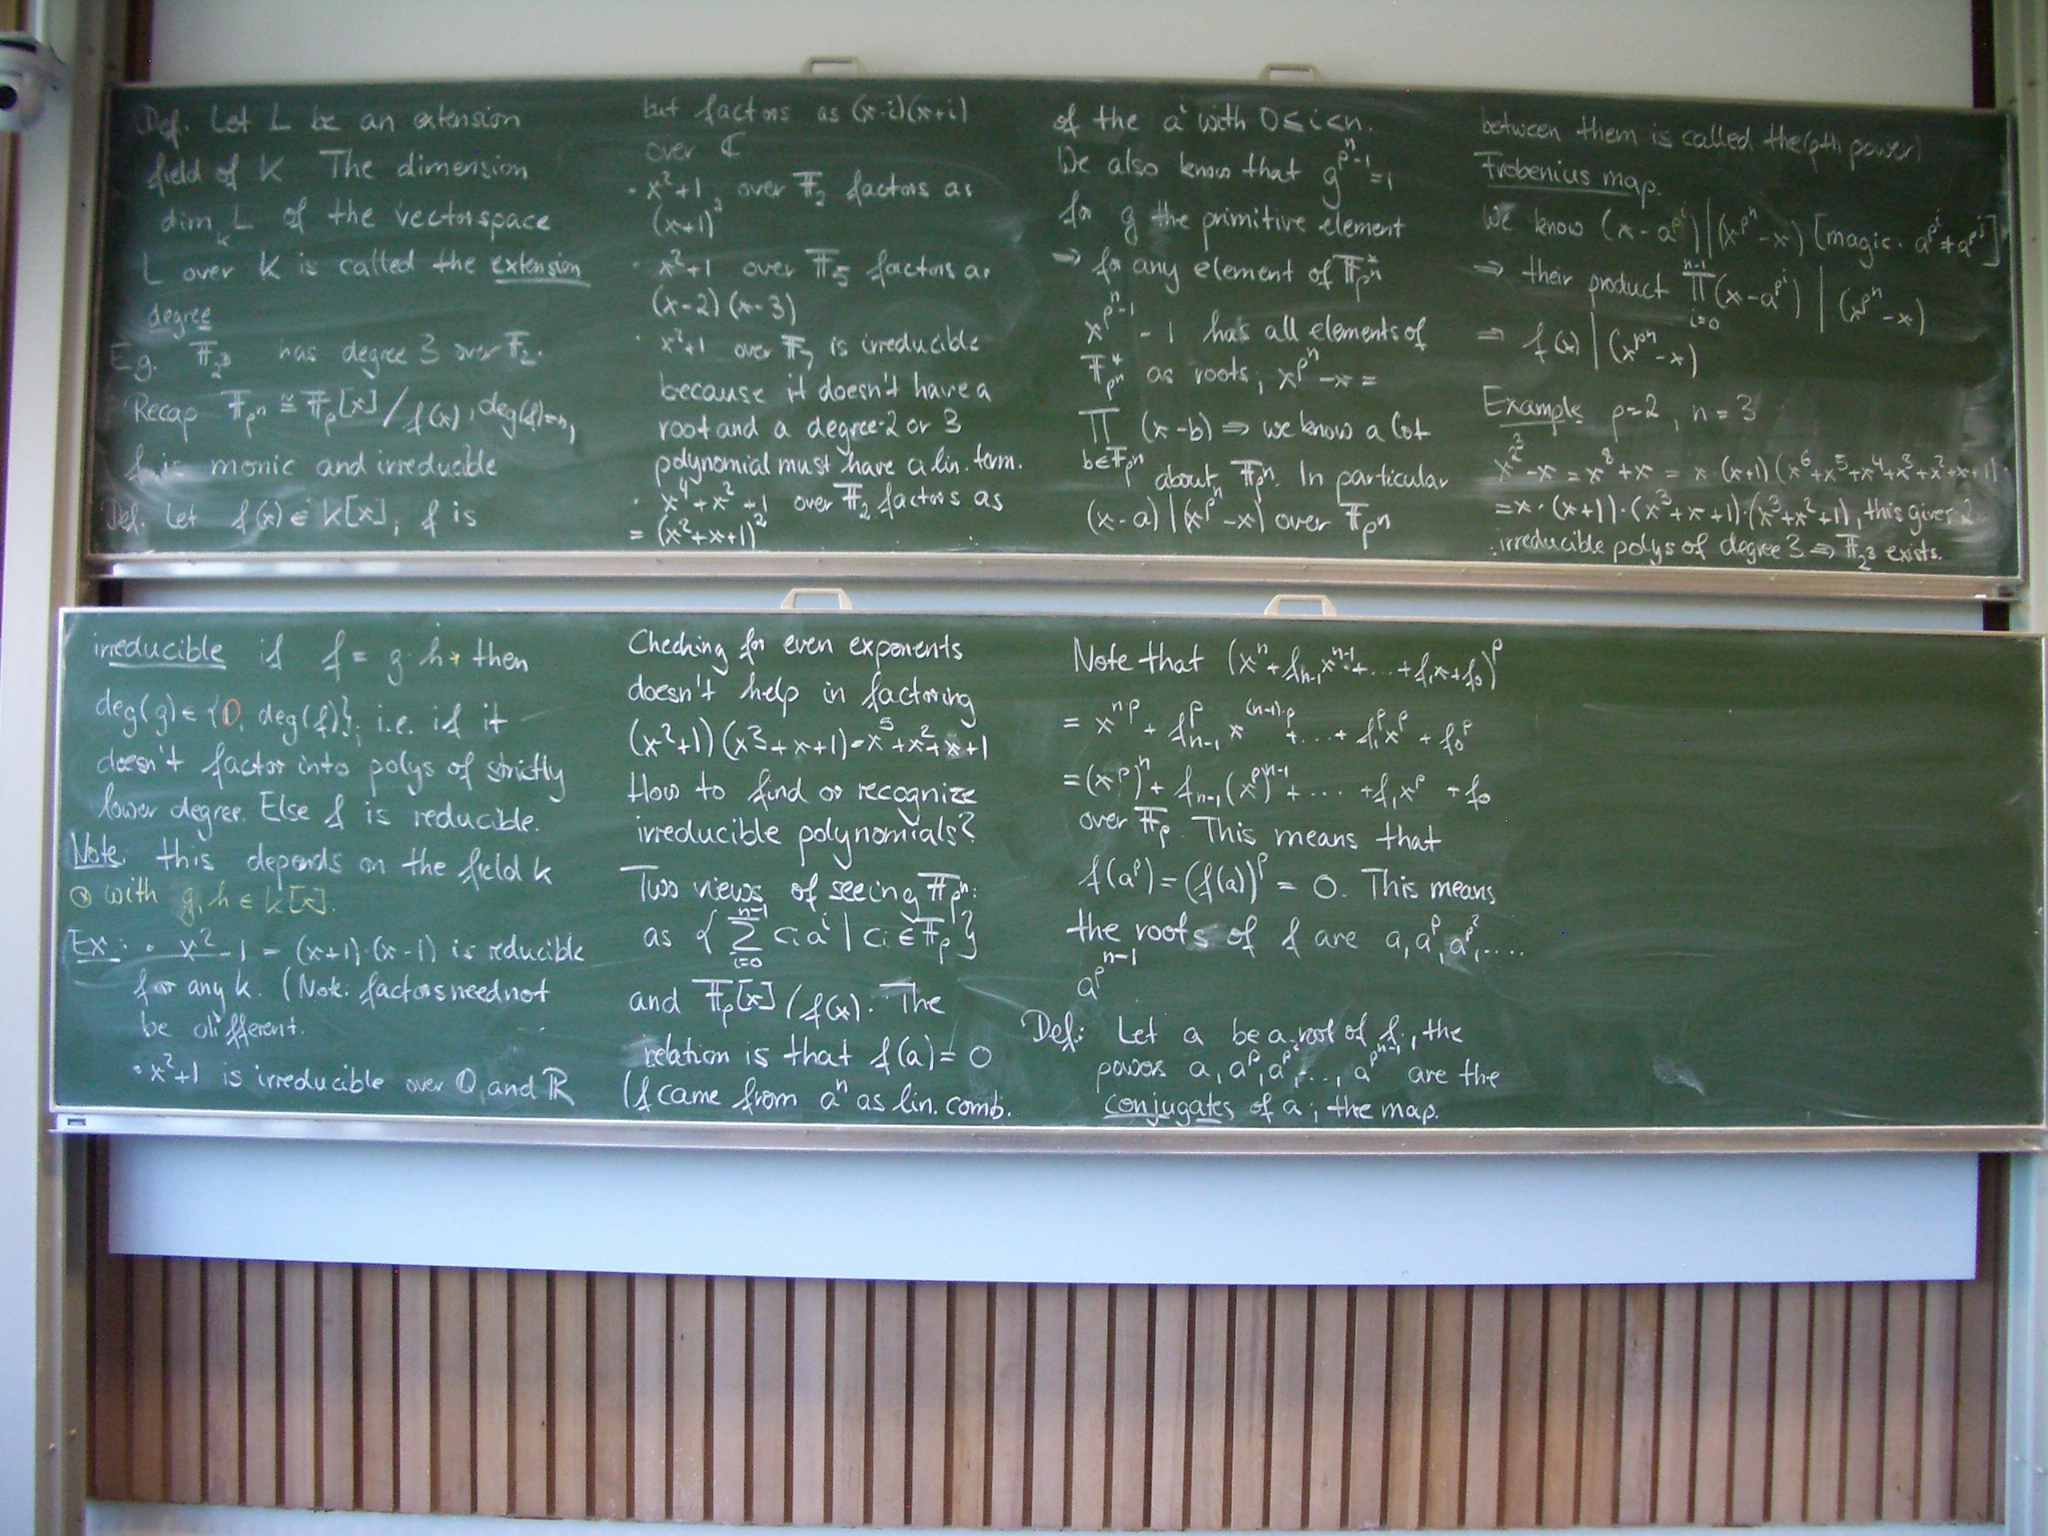 Def. Let L be an extension
field of K The dimension
dim_K L of the vectorspace
L over K is called the extension
degree
E.g. 𝔽_{2^3} has degree 3 over 𝔽_2.
Recap 𝔽_{p^n} ≅ 𝔽_p[x]/f(x), deg(f)=n,
f is monic and irreducible
Def. Let f(x) ∈ k[x], f is
irreducible if f = g·h then
deg(g) ∈ {0, deg(f)}, i.e. if it
doesn't factor into polys of strictly
lower degree. Else f is reducible.
Note. this depends on the field k
⊗ with g, h ∈ k[x].
Ex: • x^2-1 = (x+1)·(x-1) is reducible
for any k. (Note: factors need not
be different.
• x^2+1 is irreducible over ℚ and ℝ
but factors as (x-i)(x+i)
over ℂ
• x^2+1 over 𝔽_2 factors as
(x+1)^2
• x^2+1 over 𝔽_5 factors as
(x-2)(x-3)
• x^2+1 over 𝔽_7 is irreducible
because it doesn't have a
root and a degree-2 or 3
polynomial must have a lin. term.
• x^4+x^2+1 over 𝔽_2 factors as
= (x^2+x+1)^2
Checking for even exponents
doesn't help in factoring
(x^2+1)(x^3+x+1)=x^5+x^2+x+1
How to find or recognize
irreducible polynomials?
Two views of seeing 𝔽_{p^n}:
as {∑_{i=0}^{n-1} c_i a^i | c_i ∈ 𝔽_p}
and 𝔽_p[x]/f(x). The
relation is that f(a) = 0
(f came from a^n as lin. comb.
of the a^i with 0 ≤ i < n.
We also know that g^{p^n-1}=1
for g the primitive element
⇒ for any element of 𝔽_{p^n}^*
x^{p^n-1} - 1 has all elements of
𝔽_{p^n}^* as roots, x^{p^n}-x =
∏_{b∈𝔽_{p^n}} (x-b) ⇒ we know a lot
about 𝔽_{p^n}. In particular
(x-a) | (x^{p^n}-x) over 𝔽_{p^n}
Note that (x^n+f_{n-1}x^{n-1}+...+f_1x+f_0)^p
= x^{np} + f_{n-1}^p x^{(n-1)·p} + ... + f_1^p x^p + f_0^p
= (x^p)^n + f_{n-1}(x^p)^{n-1} + .... + f_1 x^p + f_0
over 𝔽_p. This means that
f(a^p) = (f(a))^p = 0. This means
the roots of f are a, a^p, a^{p^2}, ....
a^{p^{n-1}}
Def: Let a be a root of f, the
powers a, a^p, a^{p^2}, ..., a^{p^{n-1}} are the
conjugates of a; the map.
between them is called the (pth power)
Frobenius map.
We know (x-a^{p^i}) | (x^{p^n}-x) [magic. a^{p^i} ≠ a^{p^j}]
⇒ their product ∏_{i=0}^{n-1} (x-a^{p^i}) | (x^{p^n}-x)
⇒ f(x) | (x^{p^n}-x)
Example p=2, n=3
x^{2^3}-x = x^8+x = x·(x+1)(x^6+x^5+x^4+x^3+x^2+x+1)
=x·(x+1)·(x^3+x+1)·(x^3+x^2+1), this gives 2
irreducible polys of degree 3 ⇒ 𝔽_{2^3} exists.